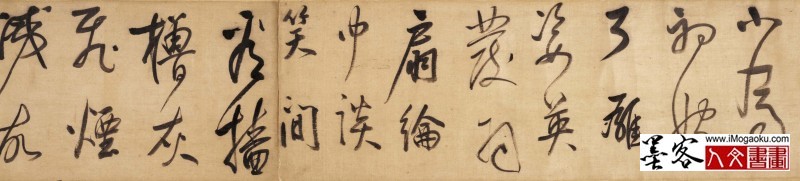 小喬
初嫁
了雄
姿英
發羽
扇綸
巾談
笑間
檣
櫓灰
飛煙
滅故
www.iMogaoku.com
墨客
人文書畫